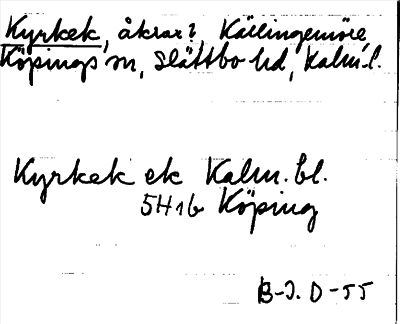 Kyrkek, åkrar?, Källingemöre,
Köpings sn, Slättbo hd, Kalm. l.
Kyrkek ek Kalm. bl.
5H1b Köping
B-J. D-55